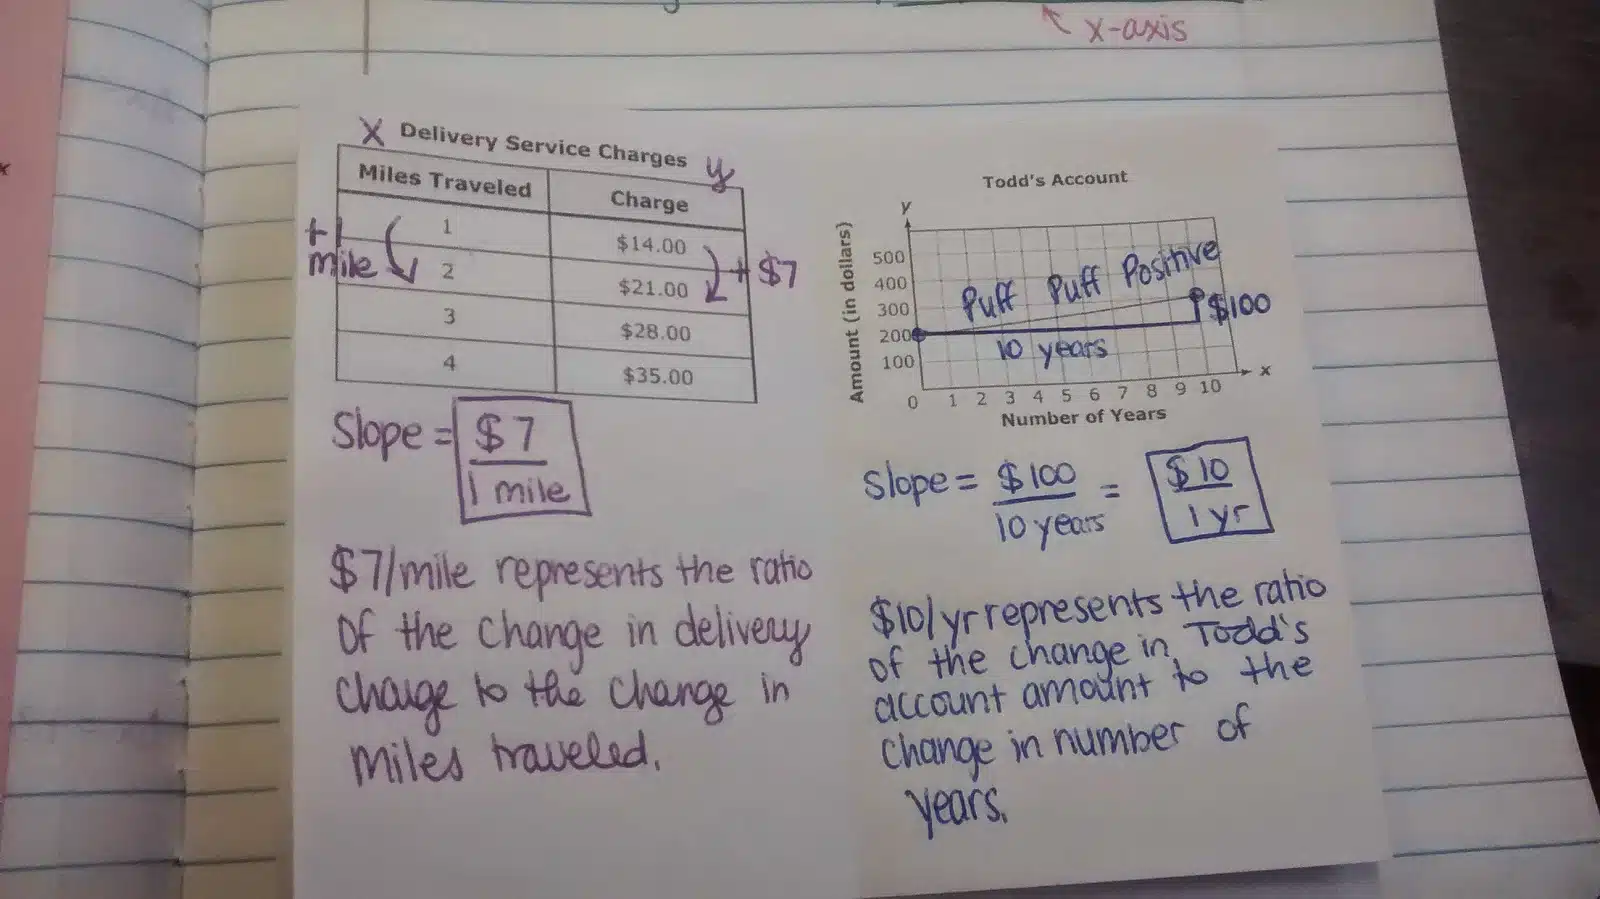 x-axis
X Delivery Service Charges y
Miles Traveled Charge
1 $14.00
2 $21.00
3 $28.00
4 $35.00
+1
mile
+ $7
Slope = $7
1 mile
$7/mile represents the ratio
of the change in delivery
charge to the change in
miles traveled.
Todd's Account
y
Amount (in dollars)
500
400
300
200
100
Puff Puff Positive
$100
10 years
x
0 1 2 3 4 5 6 7 8 9 10
Number of Years
Slope = $100 = $10
10 years 1 yr
$10/yr represents the ratio
of the change in Todd's
account amount to the
change in number of
years.